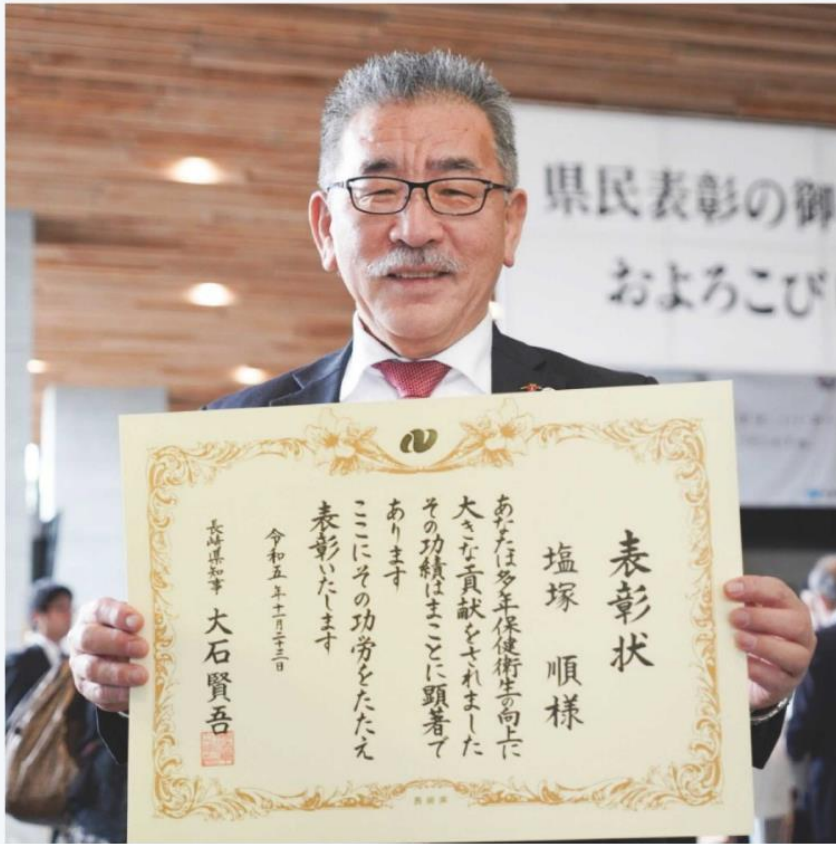 県民表彰の御
およろこび
表彰状
塩塚 順様
あなたは多年保健衛生の向上に
大きな貢献をされました
その功績はまことに顕著で
あります
ここにその功労をたたえ
表彰いたします
令和五年十一月二十三日
長崎県知事 大石賢吾
長崎県